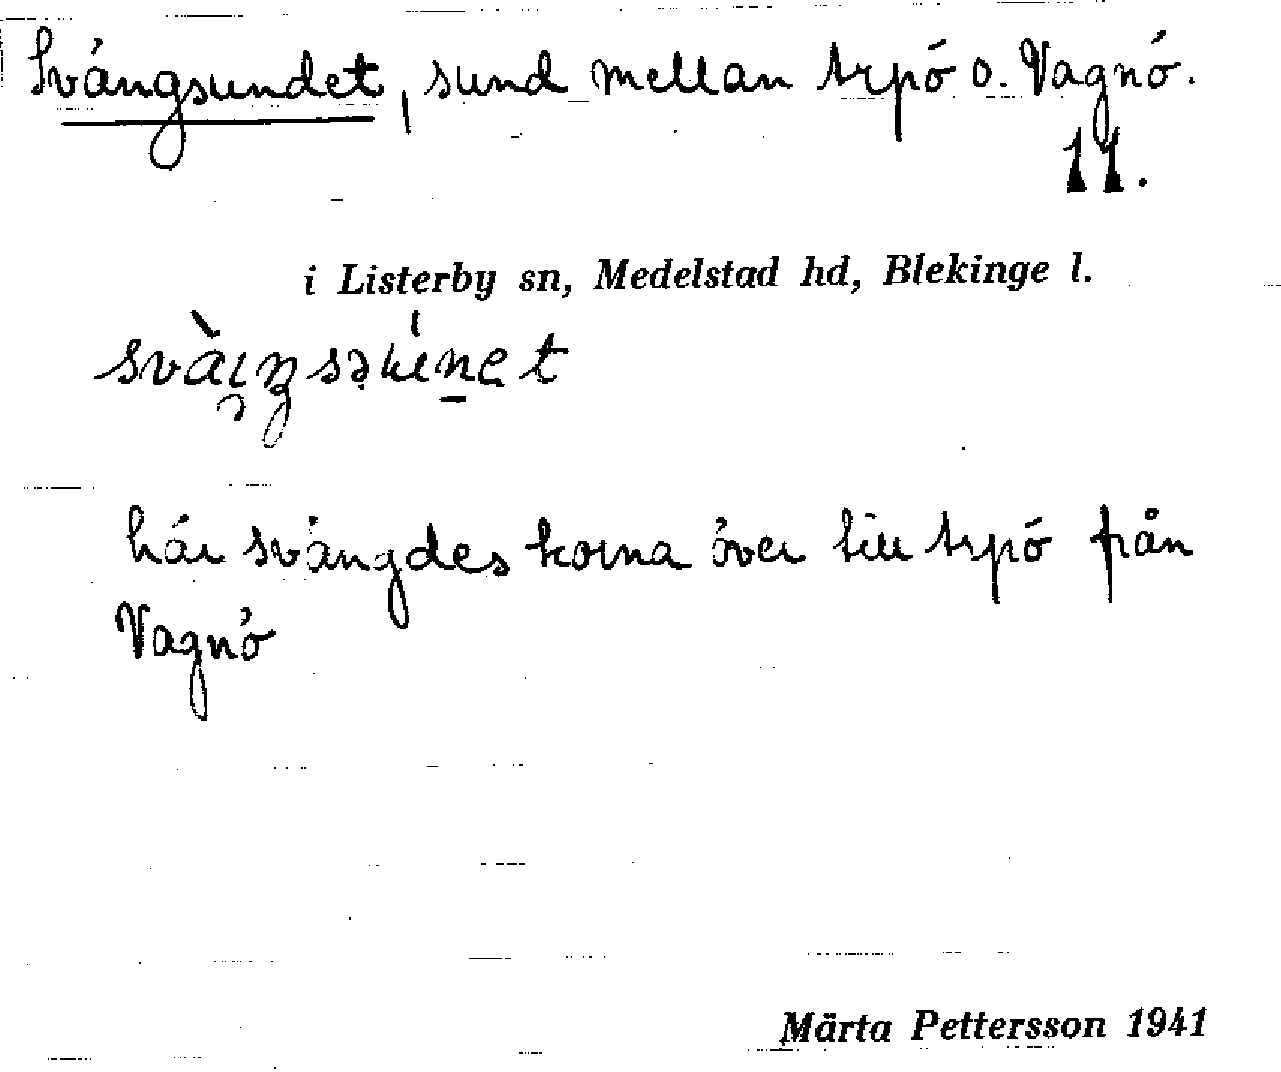 Svängsundet, sund mellan Arpö o. Vagnö.
11.
i Listerby sn, Medelstad hd, Blekinge l.
här svängdes korna över till Arpö från
Vagnö
Märta Pettersson 1941